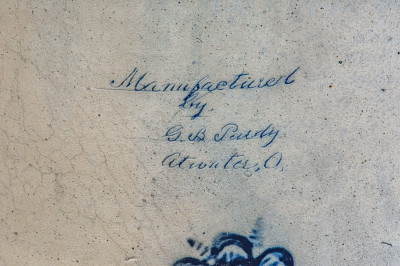 Manufactured
by
G. B Purdy
Atwater, O.